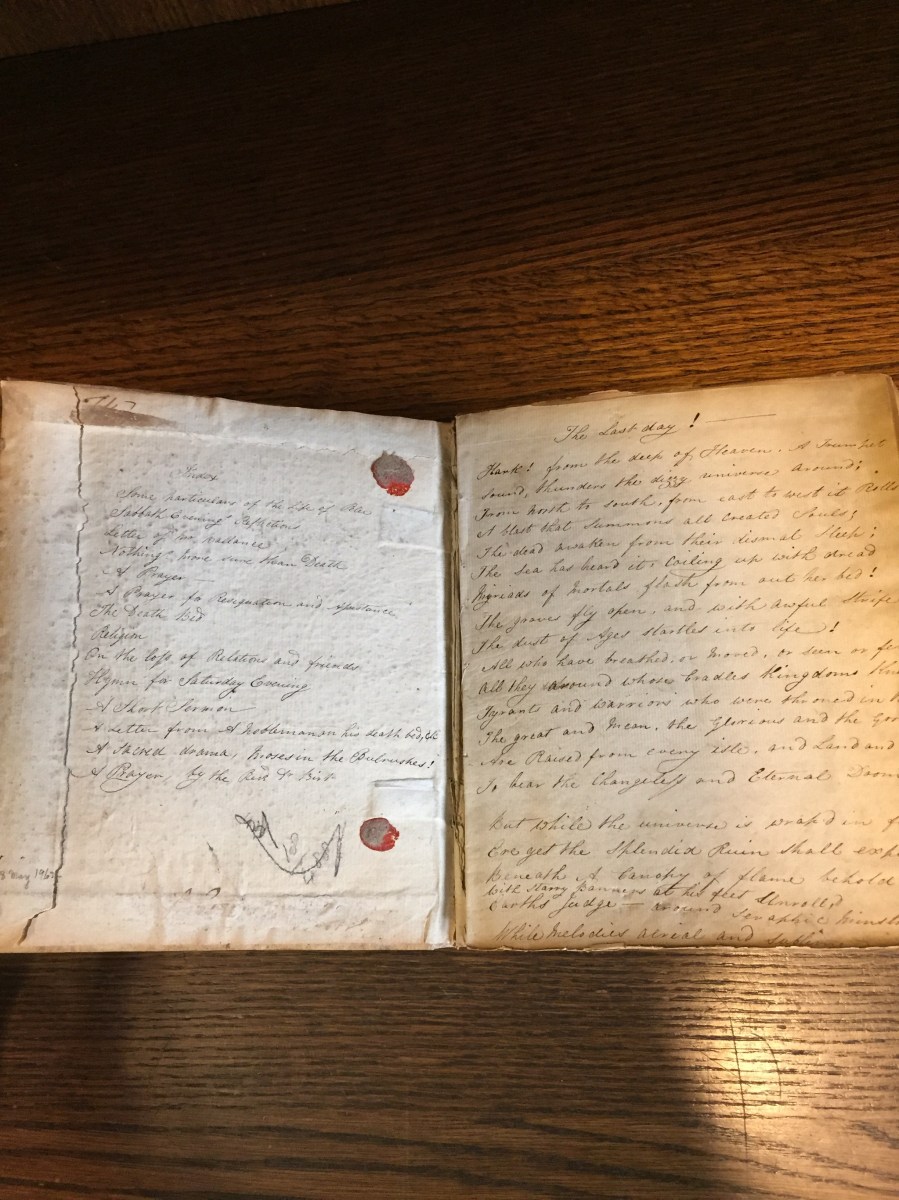 Index
Some particulars of the life of
Sabbath Evening Reflections
Letter of
Nothing more sure than Death
A Prayer
A Prayer for Resignation and
The Death bed
Religion
On the loss of Relations and friends
Hymn for Saturday Evening
A Short Sermon
A Letter from A Nobleman on his death bed, &c
A Sacred drama, Moses in the Bulrushes!
A Prayer, by the Revd Dr
8 May 196
The Last day!
Hark! from the deep of Heaven. A Trumpet
sound, thunders the dizzy universe around;
From North to south, from east to west it Rolls
A blast that Summons all created Souls;
The dead awaken from their dismal Sleep;
The Sea has heard it, Coiling up with dread
Myriads of Mortals flash from out her bed!
The graves fly open, and with awful Strife
The dust of Ages startles into life!
All who have breathed, or moved, or seen or
All they around whose Cradles Kingdoms
Tyrants and warriors who were throned in
The great and mean, the Glorious and the
Are Raised from every isle, and Land and
To hear the Changeless and Eternal Doom
But while the universe is wrap'd in
Ere yet the Splendid Ruin shall
Beneath A Canopy of flame behold
With starry Banners at his feet Unrolled
Earths Judge — around Seraphic
While Melodies aerial and